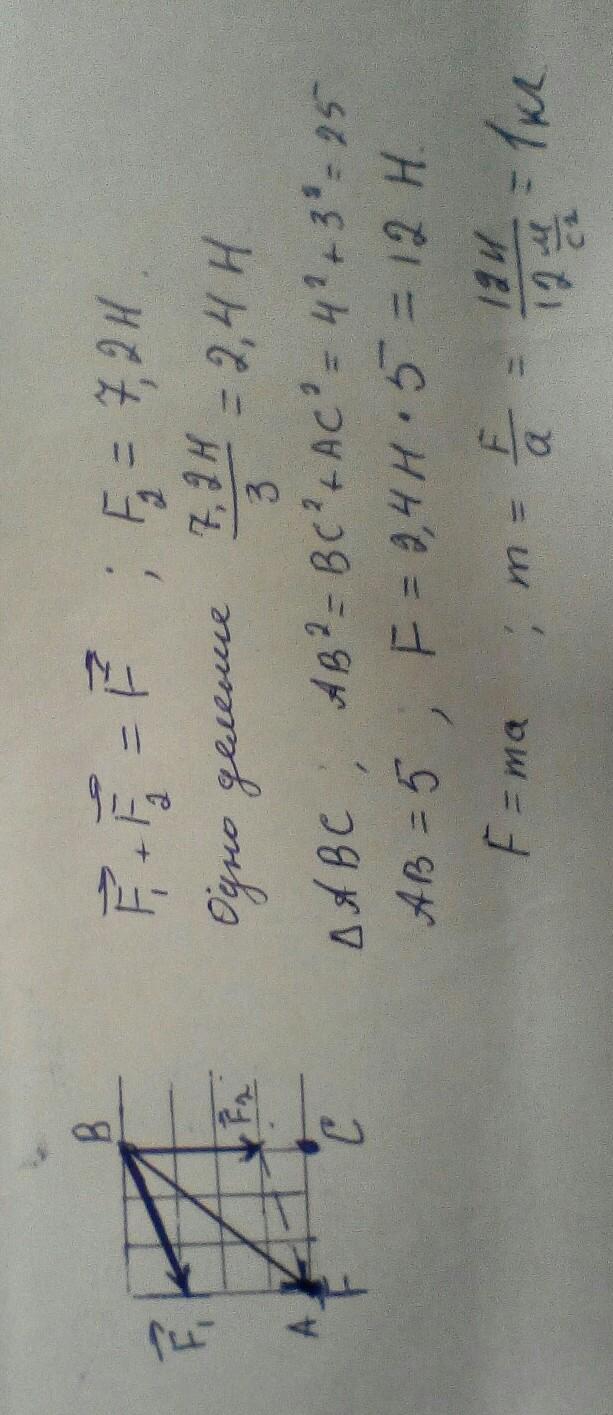 F⃗₁ + F⃗₂ = F⃗ ; F₂ = 7,2 Н.
Одно деление 7,2 Н / 3 = 2,4 Н
Δ ABC , AB² = BC² + AC² = 4² + 3² = 25
AB = 5 , F = 2,4 Н · 5 = 12 Н.
F = ma ; m = F / a = 12 Н / 12 м/с² = 1 кг
B
F⃗₁
F⃗₂
A
F
C